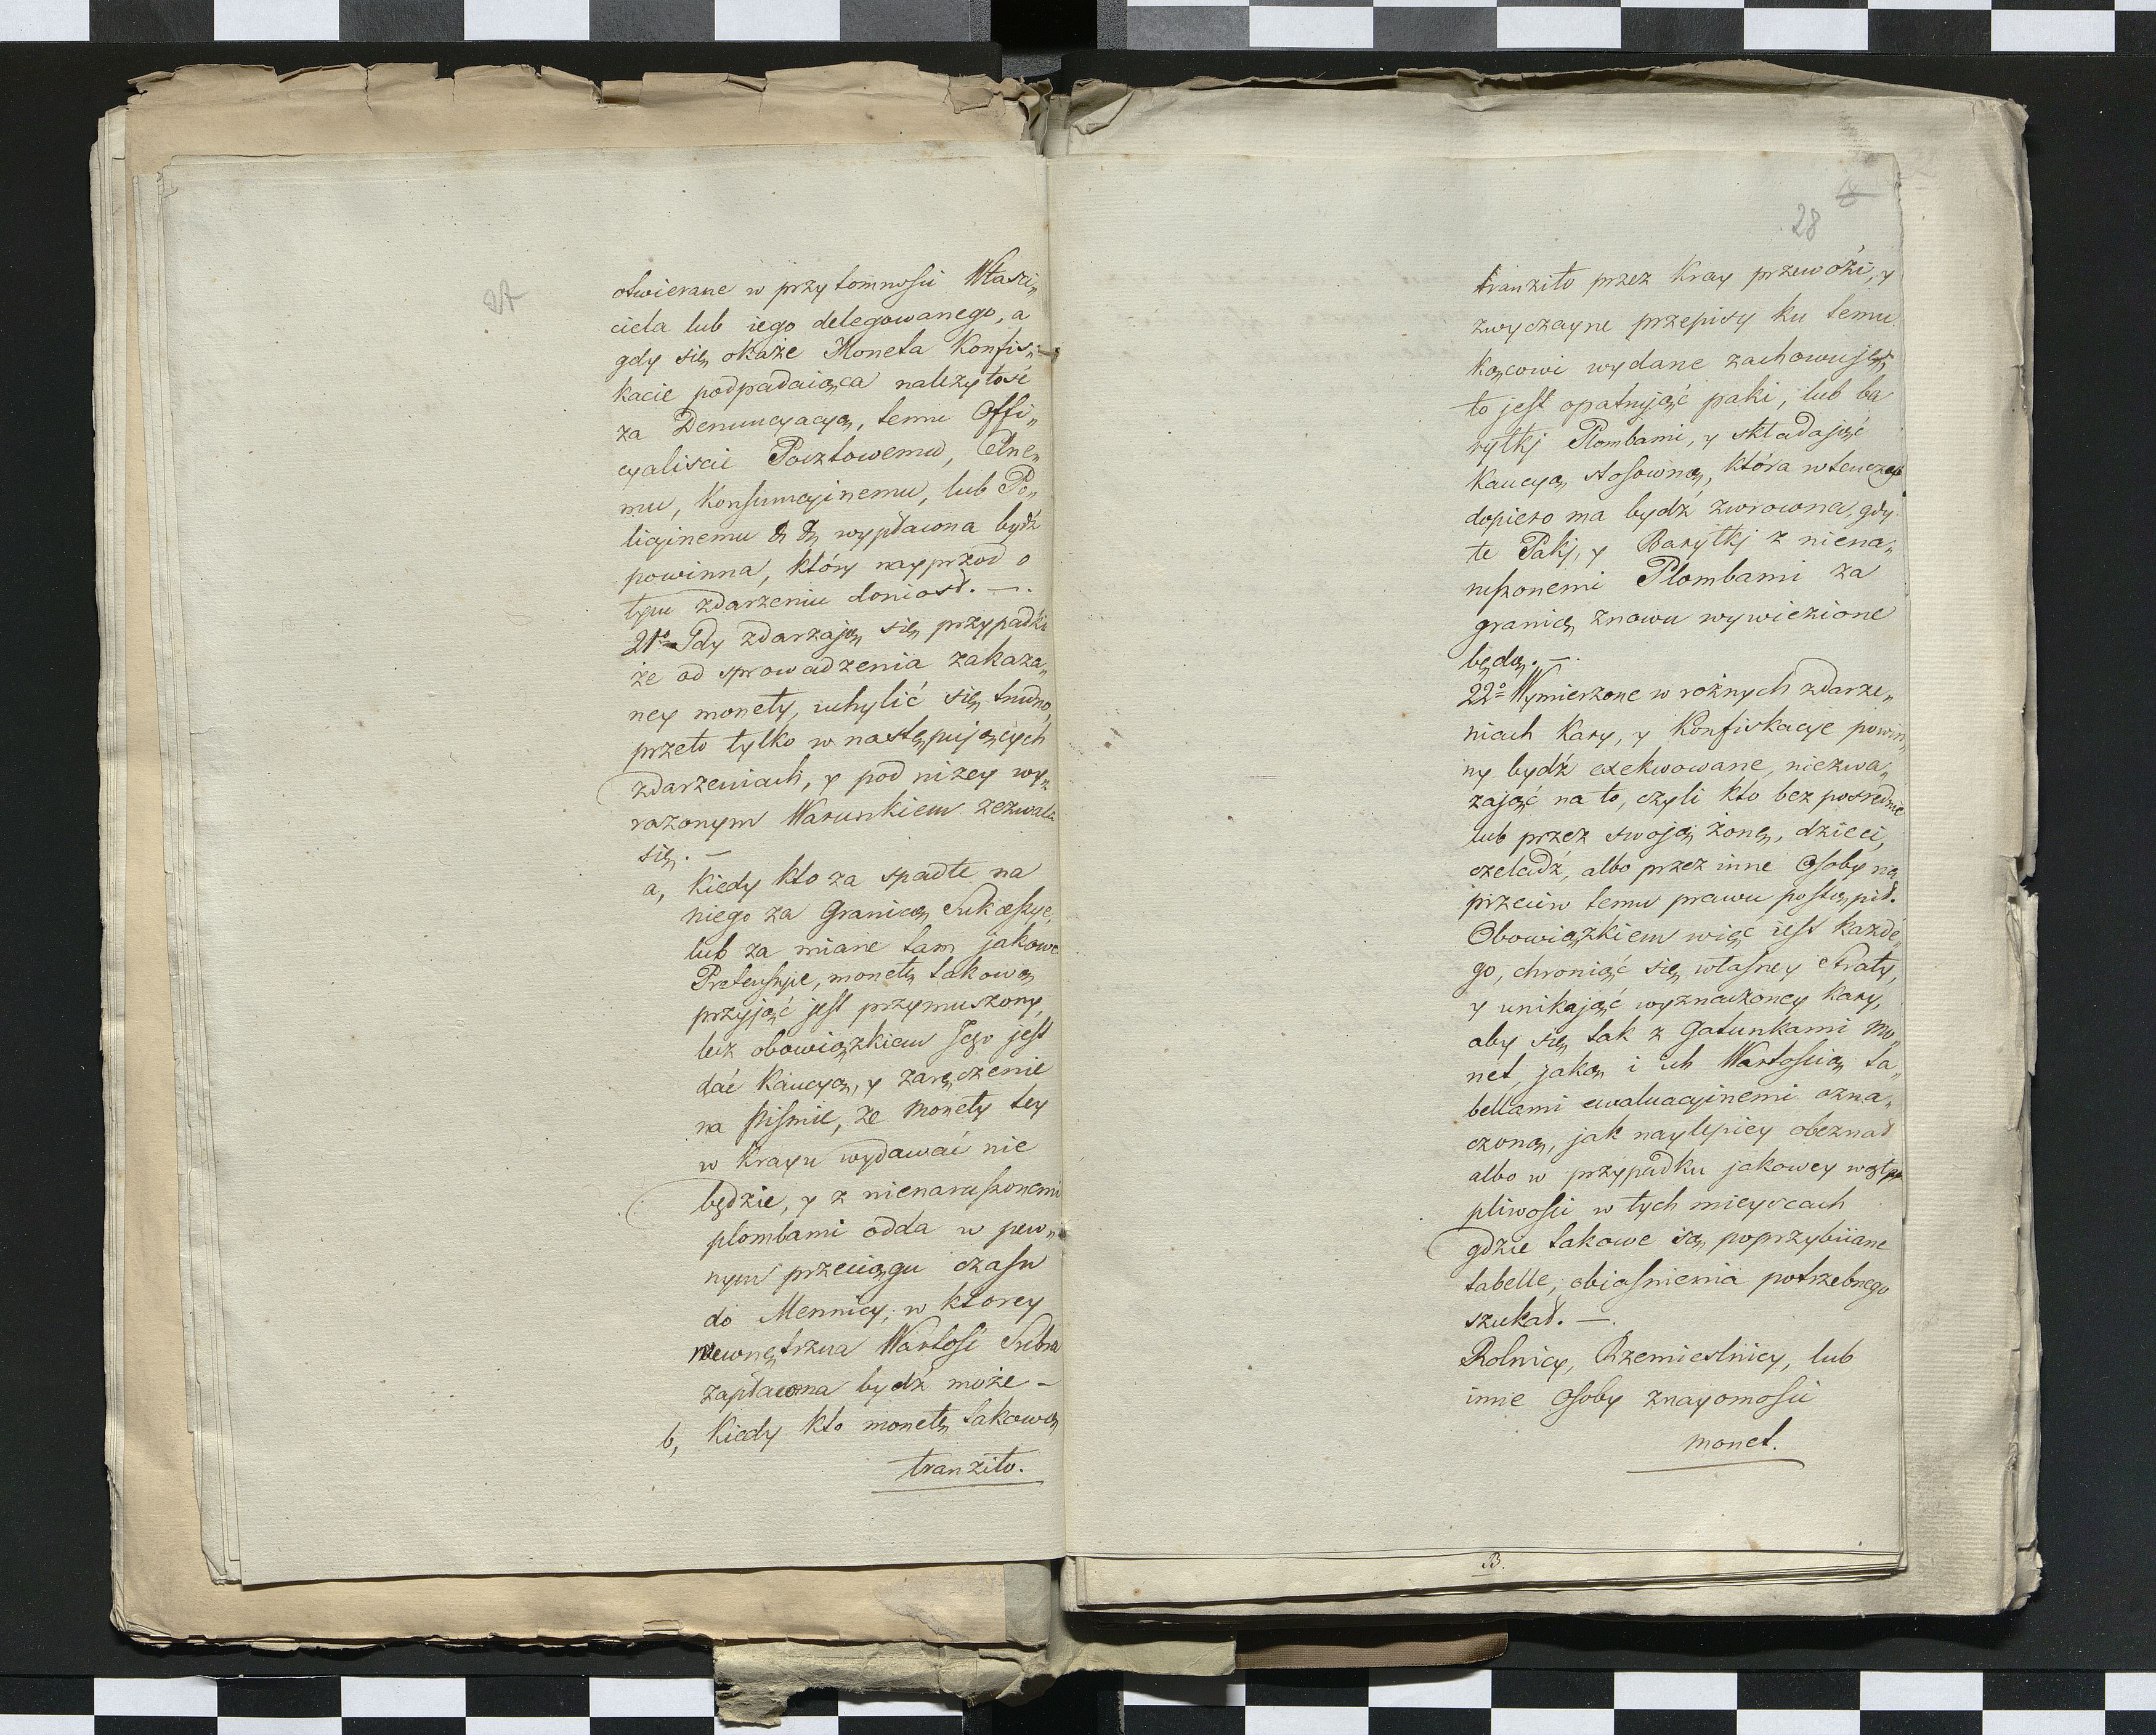 27
otwierane w przytomnosci Własci„
ciela lub iego delegowanego, a
gdy się okaże Moneta Konfis„
kacie podpadaiąca należytość
za Denuncyacyą, temu Offi„
cyaliscie Pocztowemu, Celne„
mu, Konsumcyjnemu, lub Po„
licyjnemu & & wypłacona bydź
powinna, który nayprzod o
tym zdarzeniu doniosł. —.
21º Gdy zdarzają się przypadki
że od sprowadzenia zakaza„
ney monety, uchylić się trudno,
przeto tylko w następujących
zdarzeniach, y pod niżey wy„
rażonym Warunkiem zezwala
się. —
a, Kiedy kto za spadłe na
niego za Granicą Sukcessye,
lub za miane tam jakowe
Pretensye, monetę takową
przyjąć jest przymuszony,
lecz obowiązkiem Jego jest
dać Kaucyą, y zaręczenie
na piśmie, że Monety tey
w Kraju wydawać nie
będzie, y z nienaruszonemi
plombami odda w pew„
nym przeciągu czasu
do Mennicy, w ktorey
wewnętrzna Wartość Srebra
zapłacona bydź może –
b, Kiedy kto monetę takową
tranzito.
28
tranzito przez Kray przewozi, y
zwyczayne przepisy ku temu
końcowi wydane zachowuje,
to jest opatrując paki, lub ba
ryłkj Plombami, y składając
Kaucyą stosowną, która wtenczas
dopiero ma bydź zwrocona, gdy
te Pakj, y Baryłkj z niena„
ruszonemi Plombami za
granicę znowu wywiezione
będą. —.
22º Wymierzone w rożnych zdarze„
niach Kary, y Konfiskacye powin„
ny bydź exekwowane, niezwa„
żając na to, czyli kto bez posrednie
lub przez swoją żonę, dzieci,
czeladź, albo przez inne Osoby na
przeciw temu prawu postąpił.
Obowiązkiem więc iest każde„
go, chroniąć się własney straty,
y unikając wyznaczoney Kary,
aby się tak z Gatunkami Mo„
net, jako i ich Wartością ta„
bellami ewaluacyjnemi ozna„
czoną, jak naylepiey obeznał
albo w przypadku jakowey wątp
pliwości w tych mieyscach
gdzie takowe są poprzybiiane
tabelle, obiaśnienia potrzebnego
szukał. —.
Rolnicy, Rzemieslnicy, lub
inne Osoby znajomości
monet.
B.